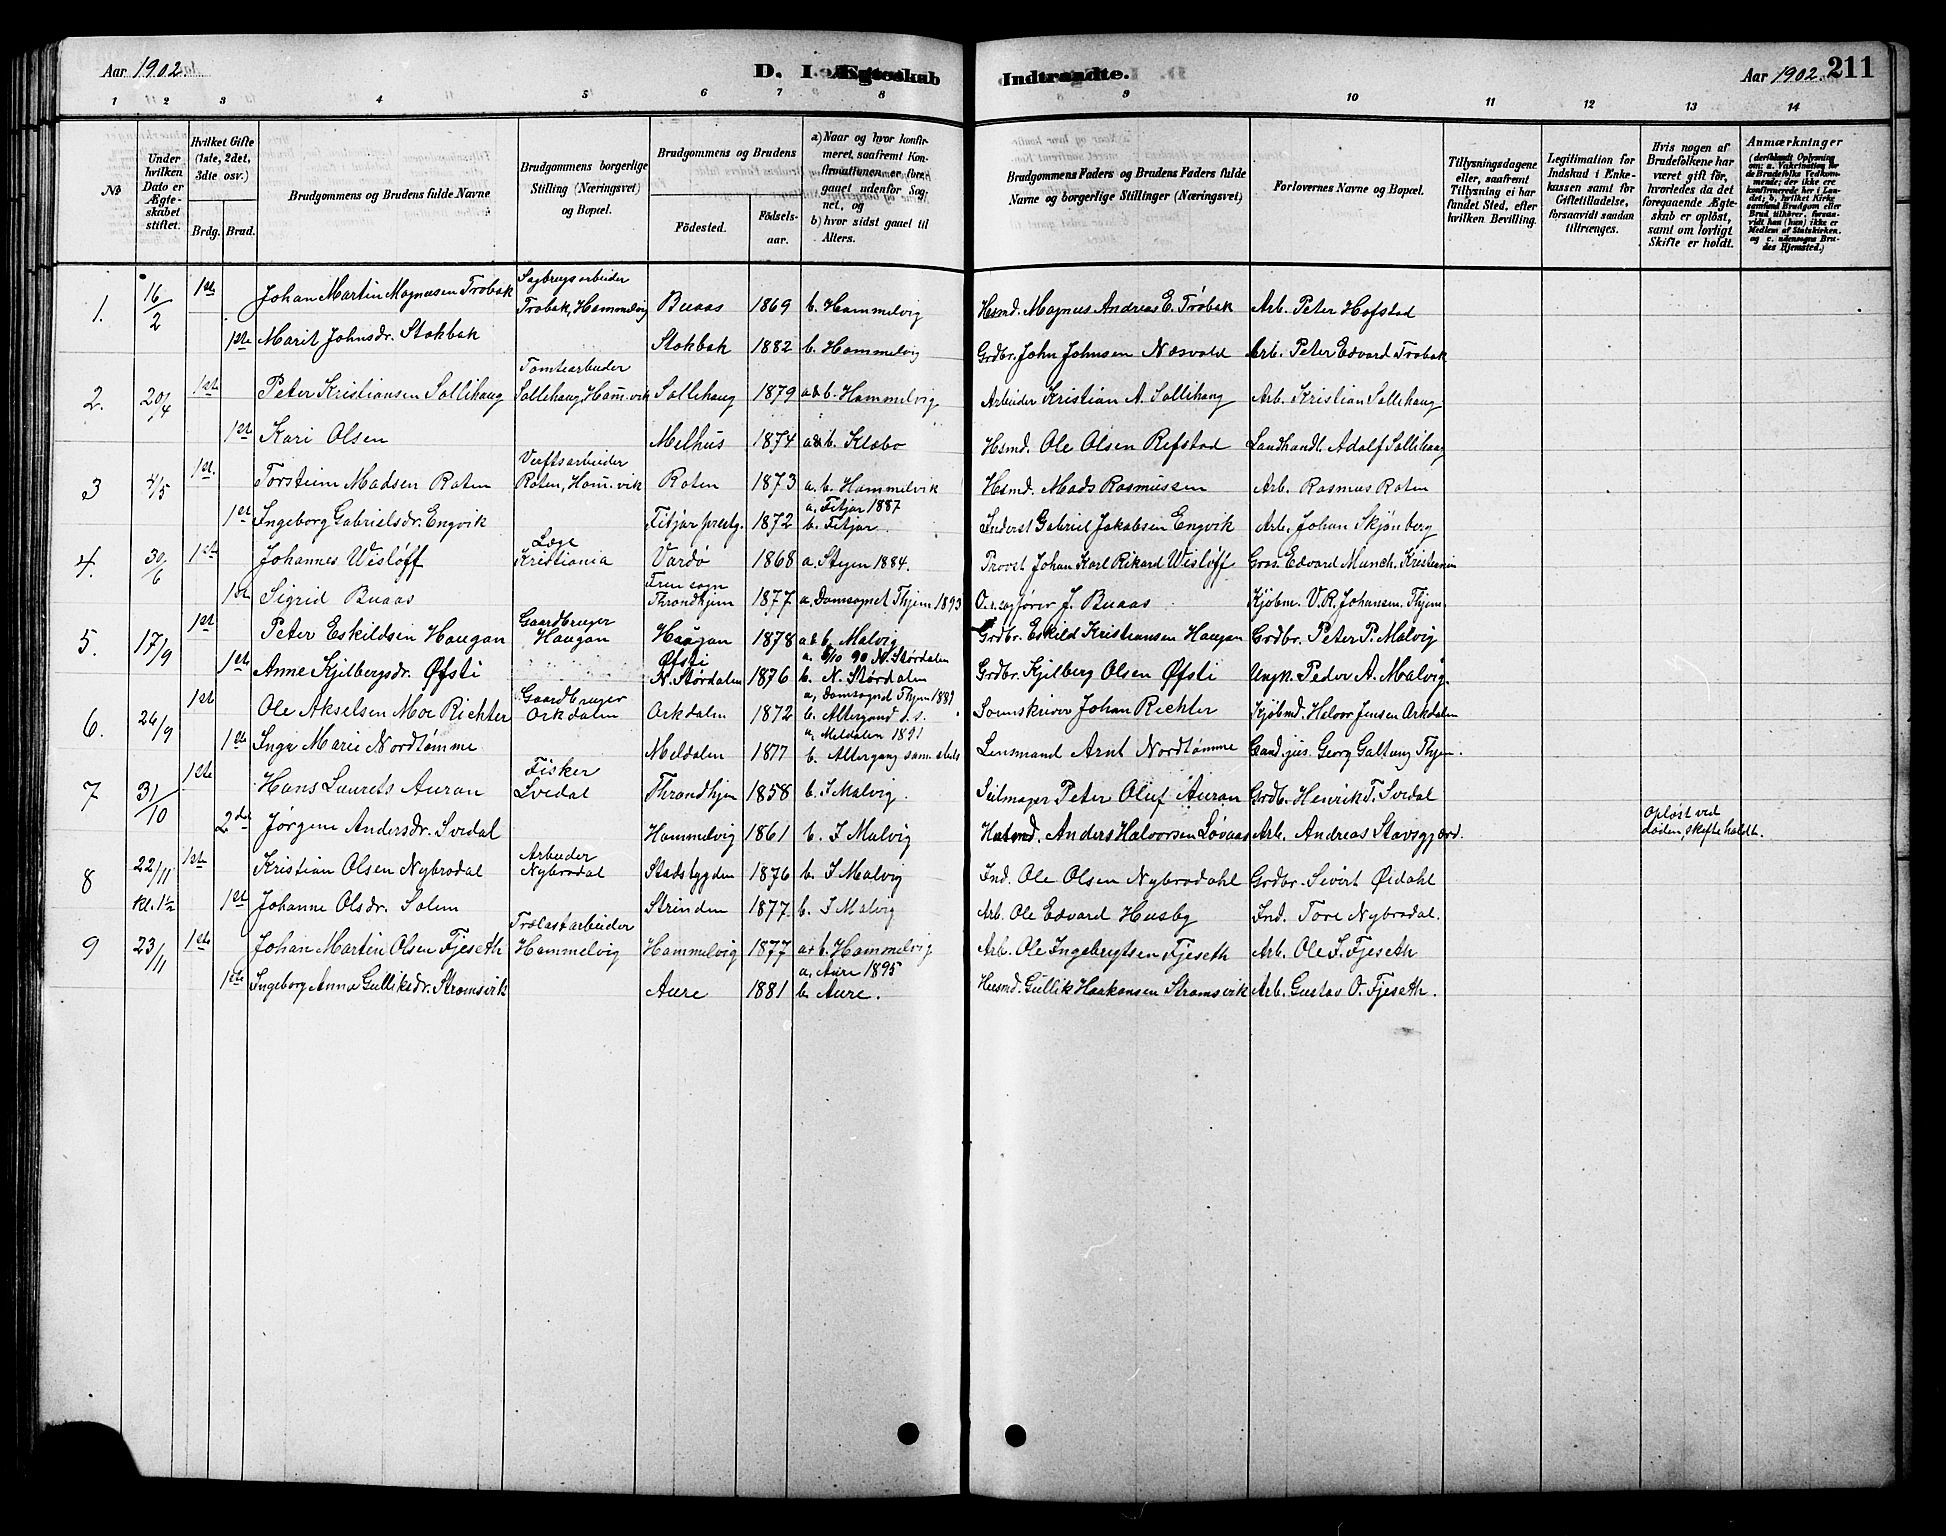 Aar 1902. D. I Ægteskab Indtraadte. Aar 1902. 211
1 2 3 4 5 6 7 8 9 10 11 12 13 14
No
Under hvilken Dato er Ægteskabet stiftet.
Hvilket Gifte (1ste, 2det, 3die osv.)
Brdg. Brud.
Brudgommens og Brudens fulde Navne
Brudgommens borgerlige Stilling (Næringsvei) og Bopæl.
Brudgommens og Brudens
Födested. Födsels-aar.
a) Naar og hvor konfirmeret, saafremt Konfirmationen er foregaaet udenfor Sognet, og
b) hvor sidst gaaet til Alters.
Brudgommens Faders og Brudens Faders fulde Navne og borgerlige Stillinger (Næringsvei)
Forlovernes Navne og Bopæl.
Tillysningsdagene eller, saafremt Tillysning ei har fundet Sted, efter hvilken Bevilling.
Legitimation for Indskud i Enkekassen samt for Giftetilladelse, forsaavidt saadan tiltrænges.
Hvis nogen af Brudefolkene har været gift för, hvorledes da det foregaaende Ægteskab er oplöst, samt om lovligt Skifte er holdt.
Anmærkninger
1. 16/2 1ste Johan Martin Magnusen Trøbak Sagbrugsarbeider Trøbak, Hommelvig Buaas 1869 b. Hommelvig Hsmd. Magnus Andreas E. Trøbak Arb. Peter Hofstad
1ste Marit Johnsdr. Stokbak Stokbak 1882 b. Hommelvig Grdbr. John Johnsen Næsvold Arb. Peter Edvard Trøbak
2. 20/4 1ste Peter Kristiansen Sollihaug Tomtearbeider Sollihaug, Hom̄.vik Sollihaug 1879 a&b. Hommelvig Arbeider Kristian A. Sollihaug Arb. Kristian Sollihaug
1ste Kari Olsen Melhus 1874 a&b. Klæbo Hsmd. Ole Olsen Refstad Landhandl. Adolf Sollihaug
3 4/5 1st. Torstein Madsen Roten Verftsarbeider Roten, Hom̄.vik Roten 1873 a. b. Hommelvik Hsmd. Mads Rasmussen Arb. Rasmus Roten
1st Ingeborg Gabrielsdr. Engvik Fitjar prestg. 1872 a. Fitjar 1887 b. Fitjar Inderst Gabriel Jakobsen Engvik Arb. Johan Skjønberg
4. 30/6 1ste Johannes Wisløff Læge Kristiania Vardø 1868 a. Stejen 1884. Provst Johan Karl Rikard Wisløff Gros. Edvard Munch. Kristiania
1ste Sigrid Buaas Frue sogn Throndhjem 1877 a. Domsognet Thjem 1893 O.r.sagfører J. Buaas Kjøbm. V.R. Johansen. Thjem
5. 17/9 1st Peter Eskildsen Haugan Gaardbruger Haugan Haugan 1878 a&b. Malvig Grdbr. Eskild Kristiansen Haugan Grdbr. Peter P. Malvig
1ste Anne Kjilbergsdr. Øfsti Øfsti N. Størdalen 1876 a. 5/10 90 N. Størdalen b. N. Størdalen Grdbr. Kjilberg Olsen Øfsti Ungk. Peder A. Malvig
6. 26/9 1st Ole Akselsen Moe Richter Gaardbruger Orkdalen Orkdalen 1872 a, Domsognet Thjem 1889 b. Altergang s.s. Sorenskriver Johan Richter Kjøbmd. Halvor Jensen Orkdalen
1ste Inga Marie Nordtømme Meldalen 1877 a, Meldalen 1891 b. Altergang sam. steds Lensmand Arnt Nordtømme Cand. jus. Georg Galtung Thjem.
7 31/10 1ste Hans Laurets Auran Fisker Svedal Throndhjem 1858 b. I Malvig. Seilmager Peter Oluf Auran Grdb. Henrik T. Svedal
2de Jørgine Andersdr. Svedal Hommelvig 1861 b. I Malvig Husmd. Anders Halvorsen Løvaas Arb. Andreas Stavsgjærd. Opløst ved døden, skifte holdt.
8 22/11 kl. 1½ 1ste Kristian Olsen Nybrodal Arbeider Nybrodal Stadsbygden 1876 b. I Malvig Ind. Ole Olsen Nybrodahl Grdbr. Sivert Øidahl
1ste Johanne Olsdr. Solem Strinden 1877. b. I Malvig Arb. Ole Edvard Husby Ind. Tore Nybrodal.
9 23/11 1ste Johan Martin Olsen Fjeseth Trælastarbeider Hommelvig Hommelvig 1877 a+b. Hommelvig Arb. Ole Ingebrigtsen Fjeseth Arb. Ole I. Fjeseth
1ste Ingeborg Anna Gulliksdr. Strømsvik Aure 1881 a. Aure 1895 b. Aure. Husmd. Gullik Haakonsen Strømsvik Arb. Gustav O. Fjeseth.